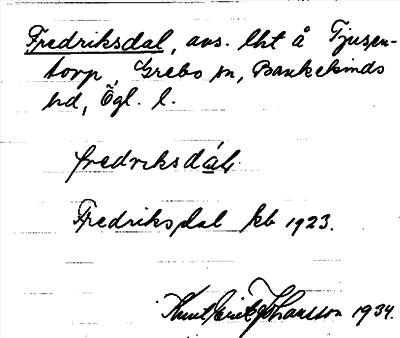 Fredriksdal, avs. lht å Tjusen-
torp, Grebo sn, Bankekinds
hd, Ögl. l.
fredriksdál,
Fredriksdal kb 1923.
Knut Erik Johansson 1934.